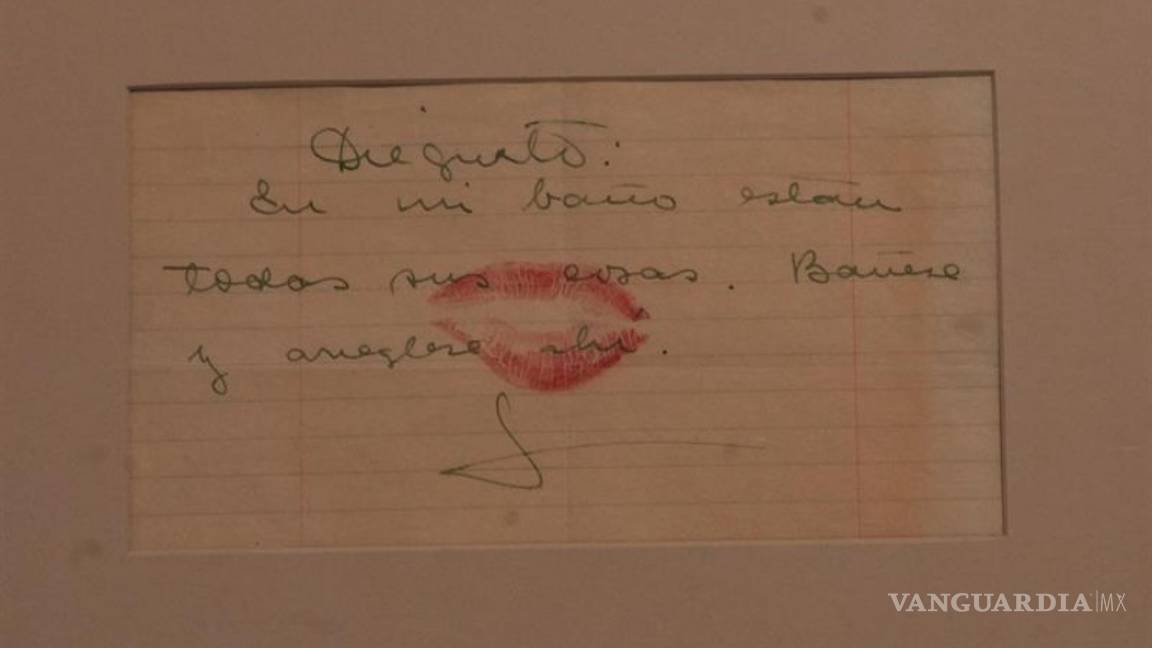 Dieguito:
En mi baño están
todas sus cosas. Bañese
y arreglese ahi.
VANGUARDIA|MX